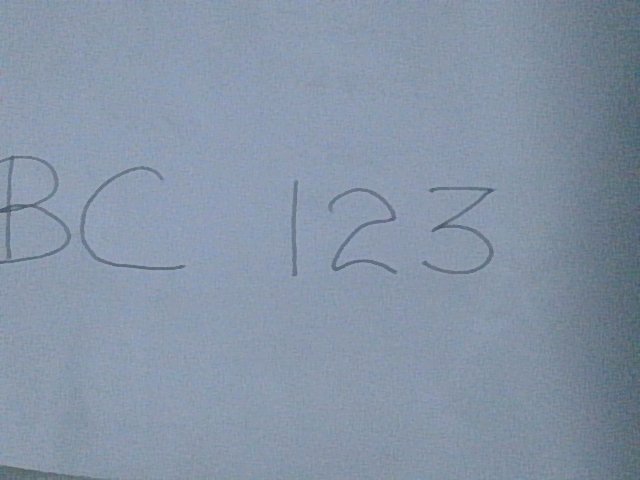 BC 123